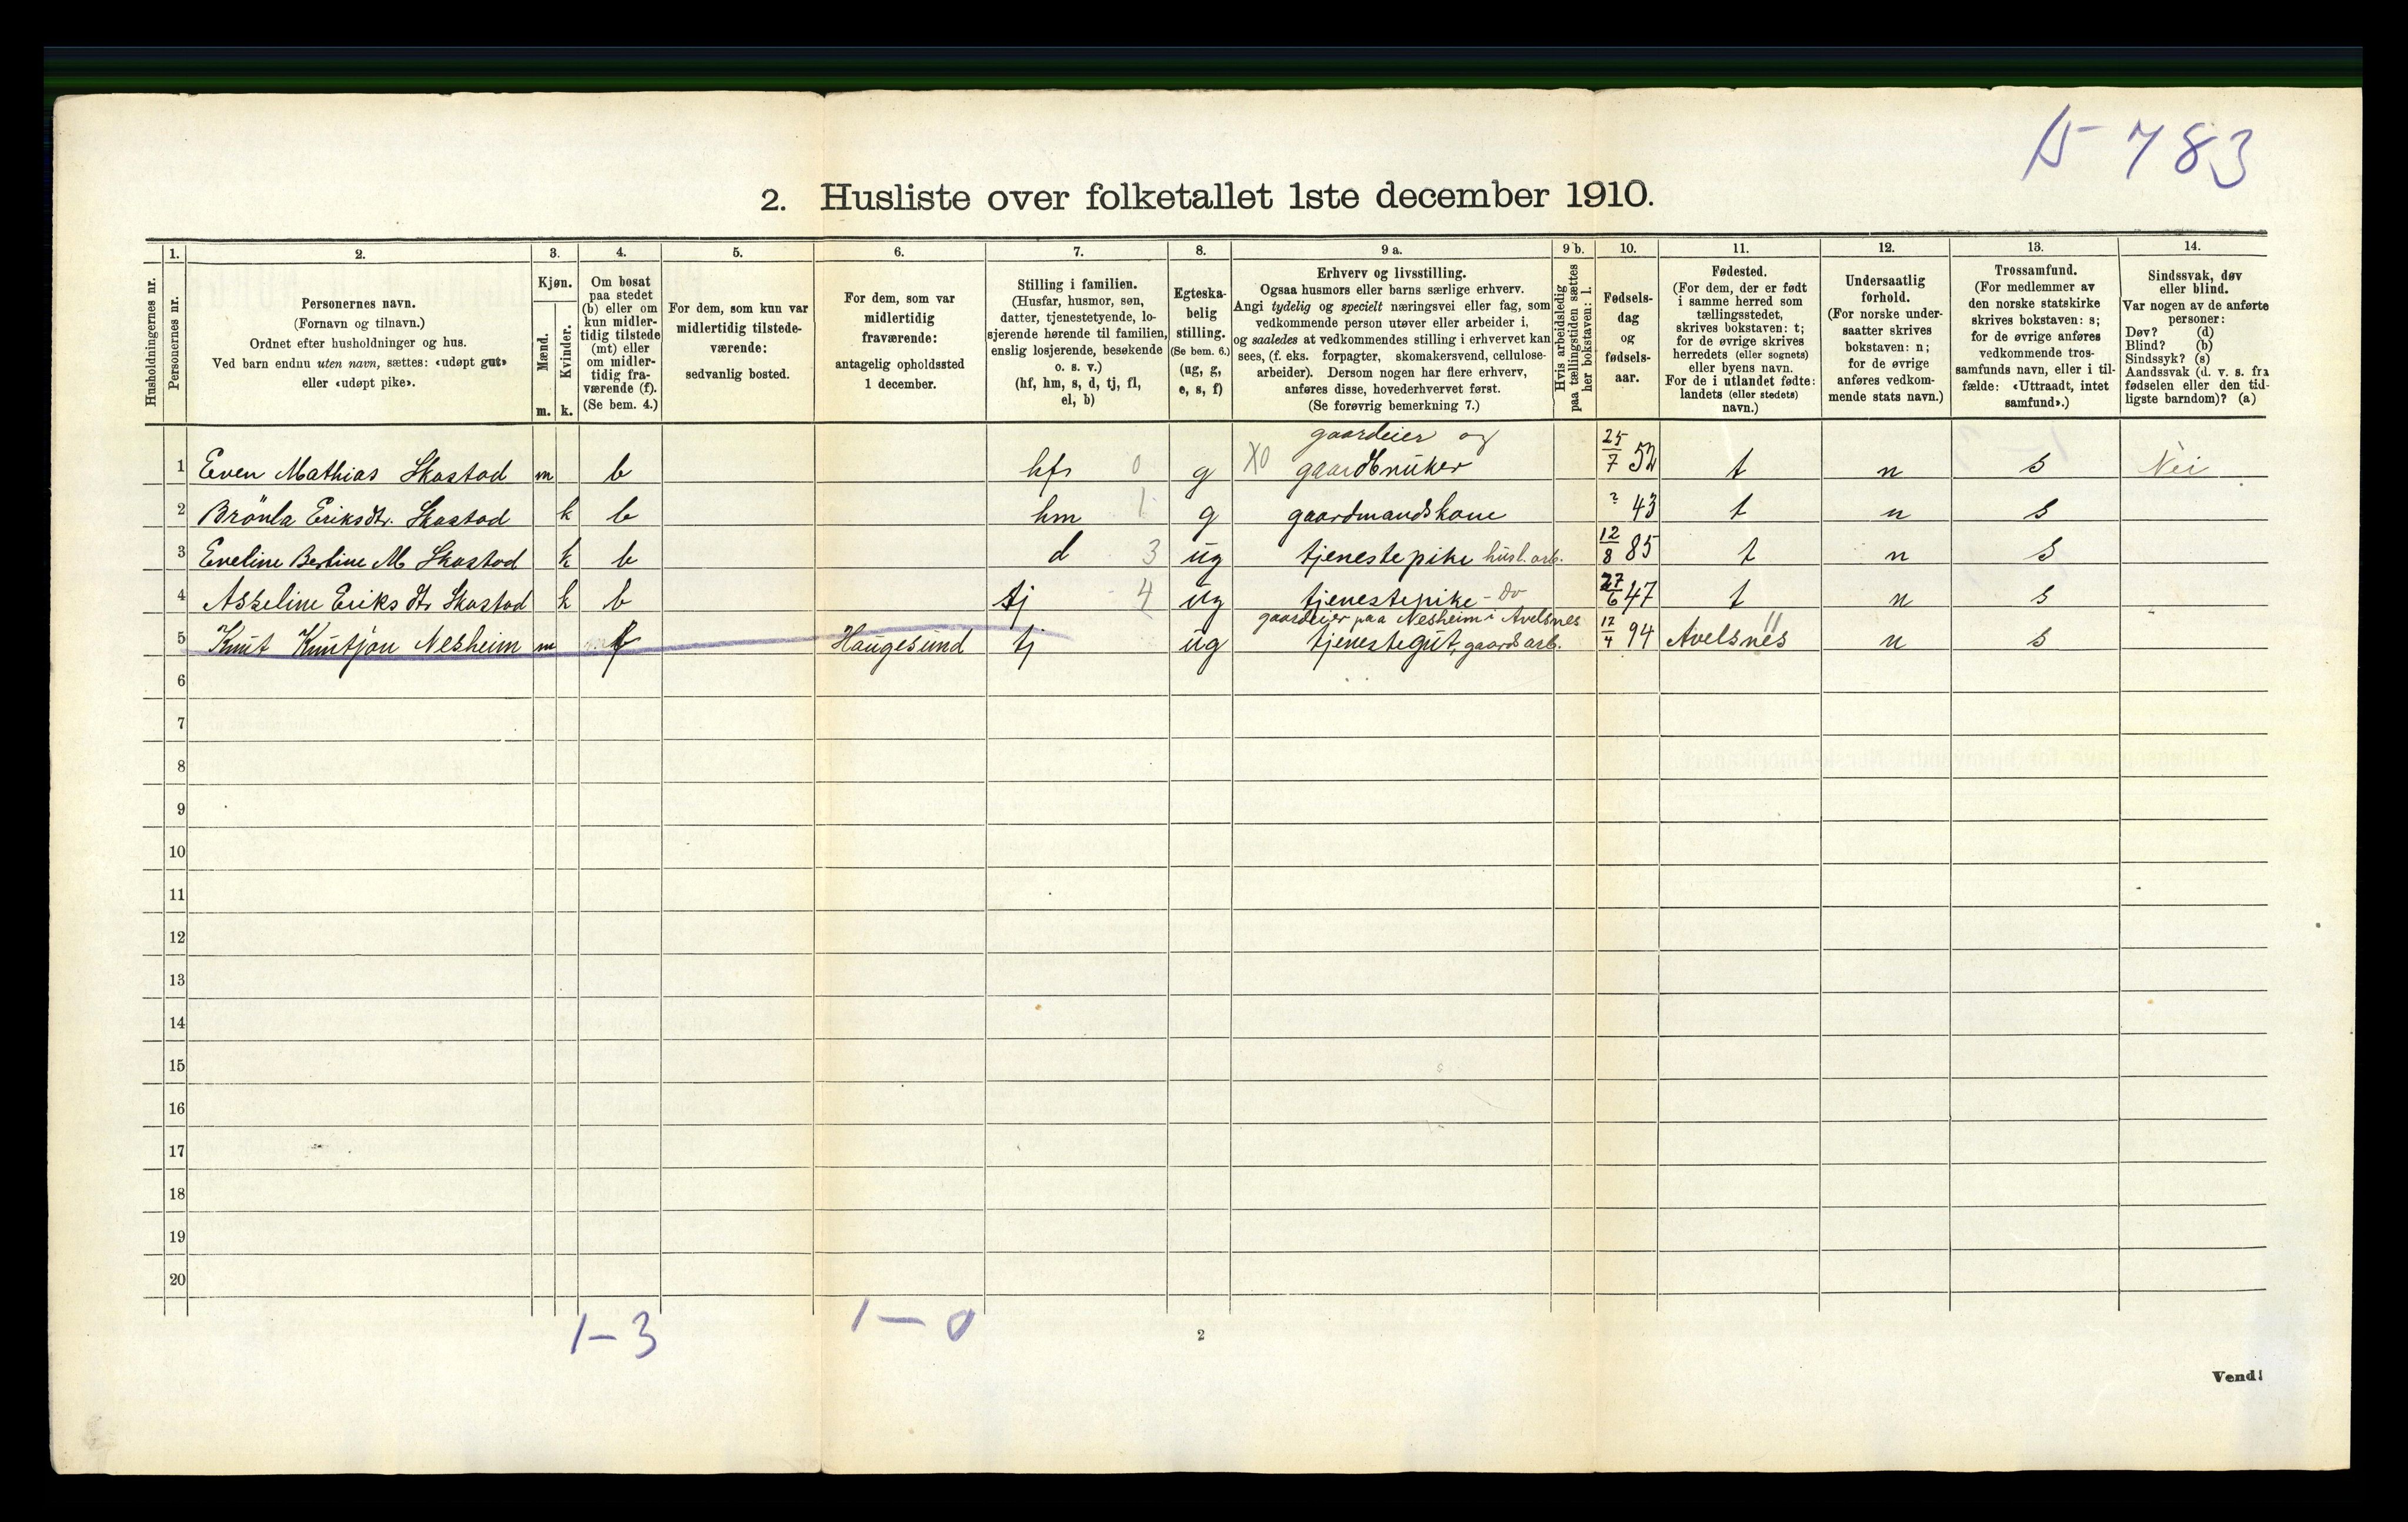 15 783
2. Husliste over folketallet 1ste december 1910.
Husholdningernes nr.
1.
Personernes nr.
2.
Personernes navn.
(Fornavn og tilnavn.)
Ordnet efter husholdninger og hus.
Ved barn endnu uten navn, sættes: «udøpt gut»
eller «udøpt pike».
3.
Kjøn.
Mænd.
Kvinder.
m. k.
4.
Om bosat
paa stedet
(b) eller om
kun midler-
tidig tilstede
(mt) eller
om midler-
tidig fra-
værende (f).
(Se bem. 4.)
5.
For dem, som kun var
midlertidig tilstede-
værende:
sedvanlig bosted.
6.
For dem, som var
midlertidig
fraværende:
antagelig opholdssted
1 december.
7.
Stilling i familien.
(Husfar, husmor, søn,
datter, tjenestetyende, lo-
sjerende hørende til familien,
enslig losjerende, besøkende
o. s. v.)
(hf, hm, s, d, tj, fl,
el, b)
8.
Egteska-
belig
stilling.
(Se bem. 6.)
(ug, g,
e, s, f)
9 a.
Erhverv og livsstilling.
Ogsaa husmors eller barns særlige erhverv.
Angi tydelig og specielt næringsvei eller fag, som
vedkommende person utøver eller arbeider i,
og saaledes at vedkommendes stilling i erhvervet kan
sees, (f. eks. forpagter, skomakersvend, cellulose-
arbeider). Dersom nogen har flere erhverv,
anføres disse, hovederhvervet først.
(Se forøvrig bemerkning 7.)
9 b.
Hvis arbeidsledig
paa tællingstiden sættes
her bokstaven: l.
10.
Fødsels-
dag
og
fødsels-
aar.
11.
Fødested.
(For dem, der er født
i samme herred som
tællingsstedet,
skrives bokstaven: t;
for de øvrige skrives
herredets (eller sognets)
eller byens navn.
For de i utlandet fødte:
landets (eller stedets)
navn.)
12.
Undersaatlig
forhold.
(For norske under-
saatter skrives
bokstaven: n;
for de øvrige
anføres vedkom-
mende stats navn.)
13.
Trossamfund.
(For medlemmer av
den norske statskirke
skrives bokstaven: s;
for de øvrige anføres
vedkommende tros-
samfunds navn, eller i til-
fælde: «Uttraadt, intet
samfund».)
14.
Sindssvak, døv
eller blind.
Var nogen av de anførte
personer:
Døv? (d)
Blind? (b)
Sindssyk? (s)
Aandssvak (d. v. s. fra
fødselen eller den tid-
ligste barndom)? (a)
gaardeier og
1 Even Mathias Skastad m b hf 0 g X0 gaardbruker 25/7 52 t n s Nei
2 Brönla Eriksdtr. Skastad k b hm 1 g gaardmandskone ? 43 t n s
3 Eveline Bertine M Skastad k b d 3 ug tjenestepike husl. arb. 12/8 85 t n s
4 Asseline Eriksdtr Skastad k b tj 4 ug tjenestepike - Do 27/6 47 t n s
gaardeier paa Nesheim i Avelsnes
5 Knut Knutjon Nesheim m f Haugesund tj ug tjenestegut, gaardsarb. 12/4 94 Avelsnes n s
6
7
8
9
10
11
12
13
14
15
16
17
18
19
20
1-3 1-0
2
Vend!